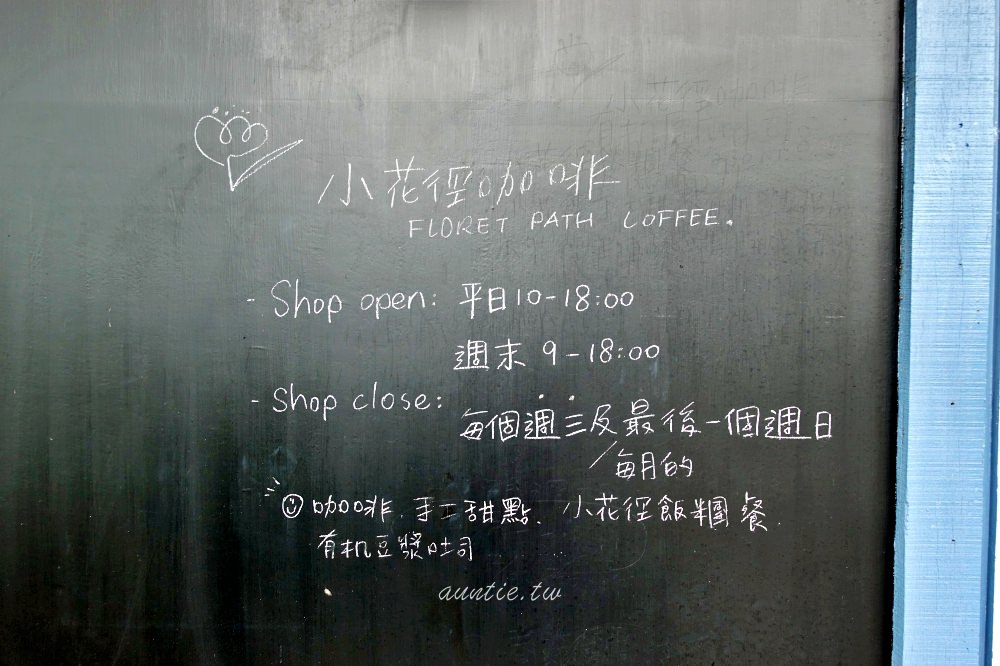 小花徑咖啡
FLORET PATH COFFEE.
- Shop open: 平日10-18:00
週末 9-18:00
- Shop close: 每個週三及最後一個週日
每月的
咖啡、手工甜點、小花徑飯糰餐、
有机豆漿吐司
auntie.tw